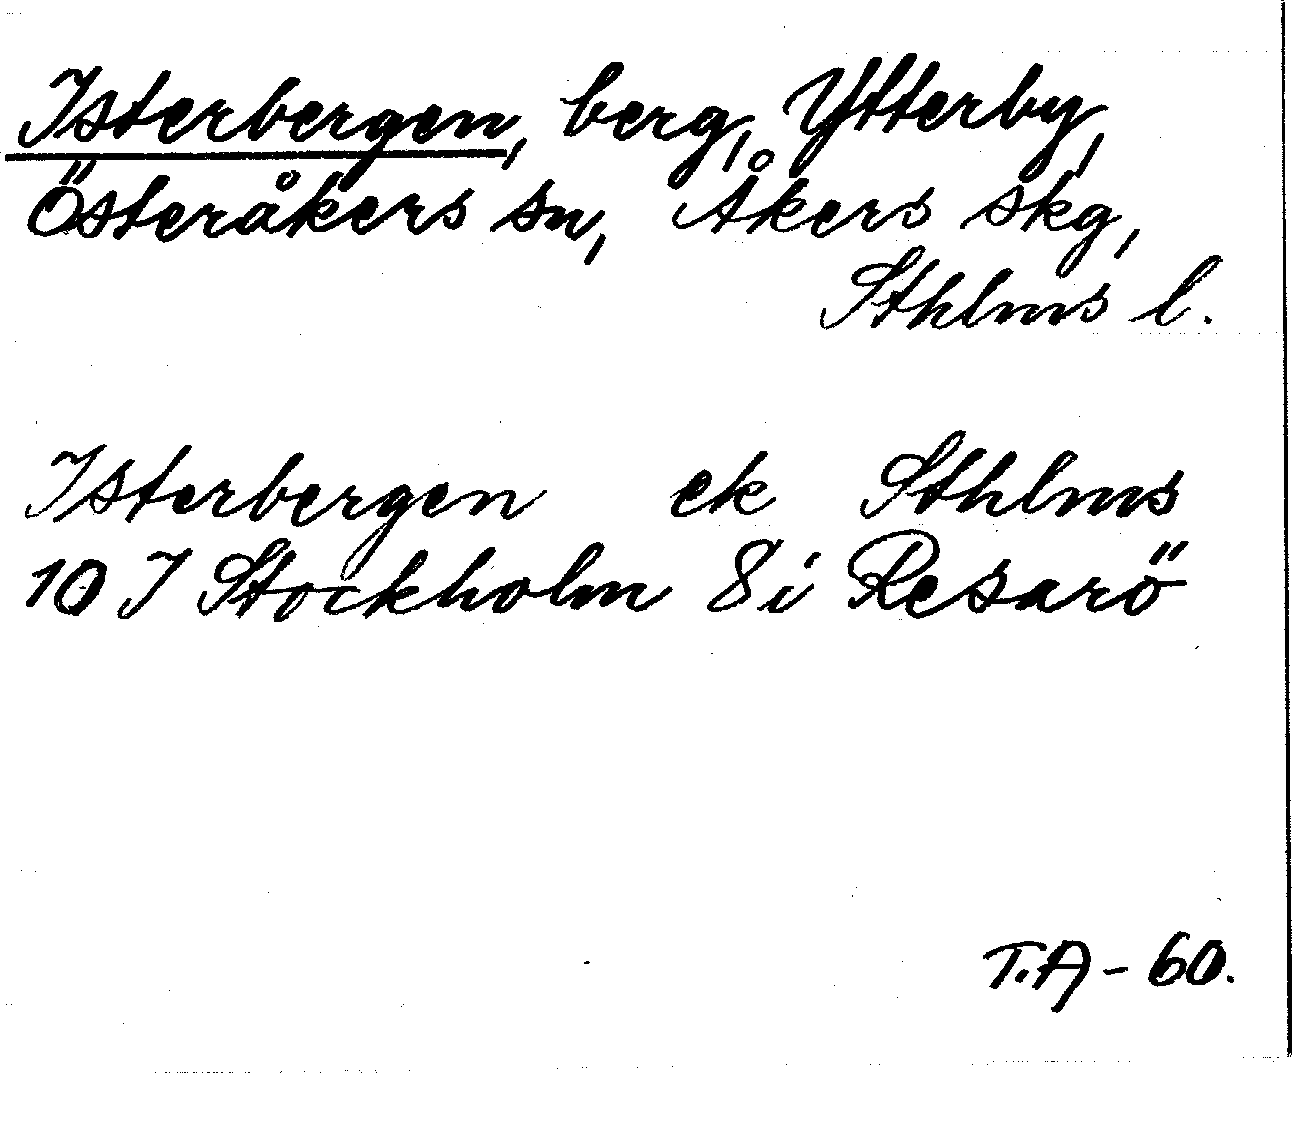 Isterbergen, berg, Ytterby,
Österåkers sn, Åkers skg,
Sthlms l.
Isterbergen ek Sthlms
10 I Stockholm 8 i Resarö
T.A - 60.